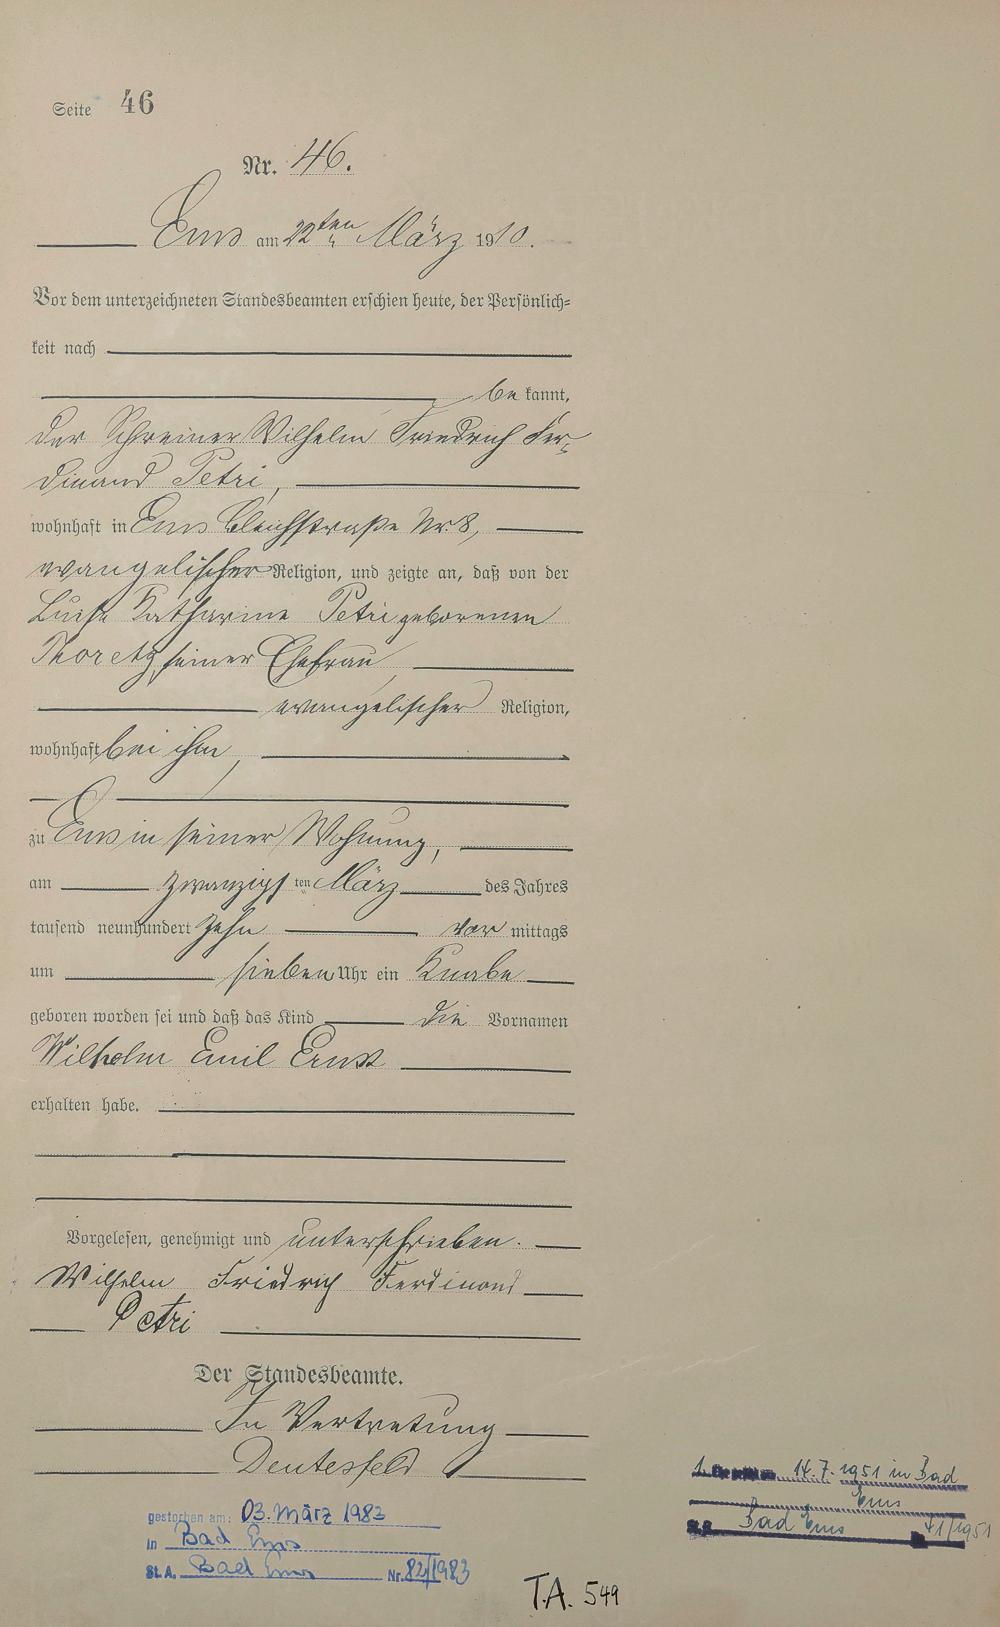 Seite 46
Nr. 46.
Ems am 22ten März 1910.
Vor dem unterzeichneten Standesbeamten erschien heute, der Persönlich-
keit nach
bekannt,
der Schreiner Wilhelm Friedrich Fer-
dinand Petri,
wohnhaft in Ems Bleichstraße Nr. 8,
evangelischer Religion, und zeigte an, daß von der
Luise Katharine Petri geborenen
Thoretz, seiner Ehefrau,
evangelischer Religion,
wohnhaft bei ihm,
zu Ems in seiner Wohnung,
am zwanzigsten März des Jahres
tausend neunhundert zehn vormittags
um sieben Uhr ein Knabe
geboren worden sei und daß das Kind die Vornamen
Wilhelm Emil Ernst
erhalten habe.
Vorgelesen, genehmigt und unterschrieben.
Wilhelm Friedrich Ferdinand
Petri
Der Standesbeamte.
In Vertretung
Deutesfeld
1. 14.7.1951 in Bad
Ems
Bad Ems 41/1951
gestorben am: 03. März 1983
in Bad Ems
St. A. Bad Ems Nr. 82/1983
T.A. 549